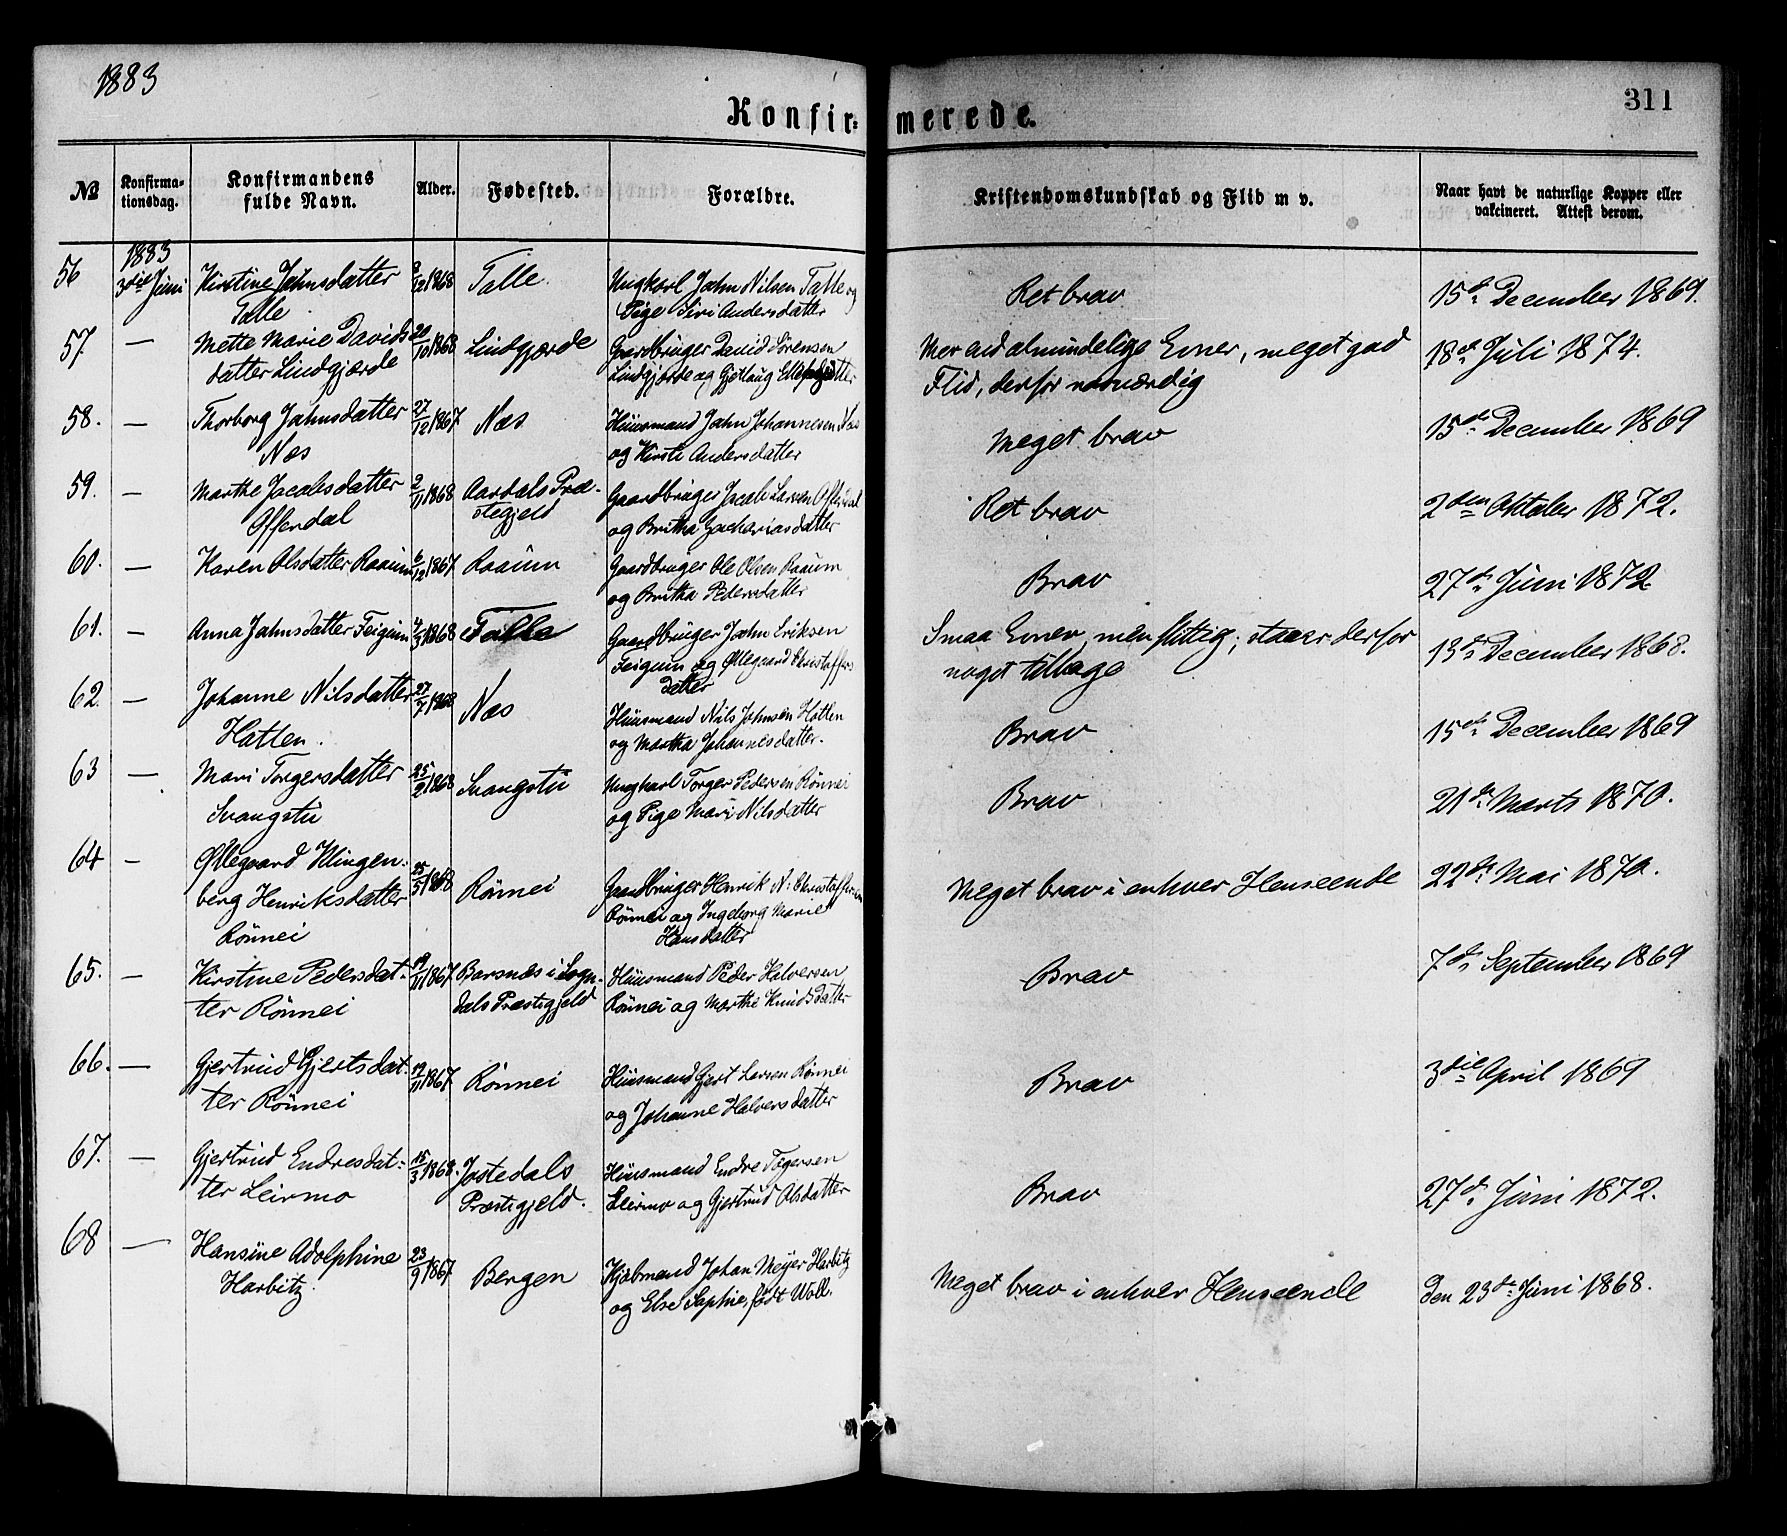 1883
311
Konfir= merede.
No
Konfirma-
tionsdag.
Konfirmandens
fulde Navn.
Alder.
Fødested.
Forældre.
Kristendomskundskab og Flid m v.
Naar havt de naturlige Kopper eller
vakcineret. Attest derom.
1883
56 3die Juni Kirstine Jahnsdatter /12 1868 Talle. Ungkarl Jahn Nilsen Talle og
Talle Pige Siri Andersdatter
Ret brav 15de December 1869.
57. — Mette Marie Davids 20/10 1868 Lindgjærde Gaardbruger David Sørensen
datter Lindgjærde Lindgjærde og Gjetlaug
Mer end almindelige Evner, meget god
Flid, derfor
18de Juli 1874.
58. — Thorborg Jahnsdatter 27/12 1867 Næs Huusmand Jahn Johannesen Næs
Næs og Kirsti Andersdatter
Meget brav 15de December 1869
59. — Marthe Jacobsdatter 2/11 1868 Aardals Præ- Gaardbruger Jacob Larsen Offerdal
Offerdal stegjeld og Britha Zachariasdatter
Ret brav 2den Oktober 1872.
60. — Karen Olsdatter Raaum 6/12 1867 Raaum Gaardbruger Ole Olsen Raaum
og Britha Pedersdatter
Brav 27de Juni 1872
61. — Anna Jahnsdatter Feigum 4/3 1868 Talle Gaardbruger Jahn Eriksen
Feigum og Øllegaard Christoffers
datter
Smaa Evner, men flittig; staaer derfor
noget tilbage
13de December 1868.
62. — Johanne Nilsdatter 27/7 1868 Næs Huusmand Nils Johnsen Hatlen
Hatlen. og Martha Johannesdatter.
Brav 15de December 1869
63 — Mari Torgersdatter 25/2 1868 Svangstu Ungkarl Torger Pedersen Rönnei
Svangstu og Pige Mari Nilsdatter
Brav 21de Marts 1870.
64 — Øllegaard Klingen- 25/5 1868 Rönnei Gaardbruger Henrik N. Christoffersen
berg Henriksdatter Rönnei og Ingeborg Marie
Rönnei Hansdatter
Meget brav i enhver Henseende 22de Mai 1870.
65. — Kirstine Pedersdat- /11 1867 Barsnæs i Sogn- Huusmand Peder Halversen
ter Rönnei dals Præstegjeld Rönnei og Marthe Knudsdatter
Brav 7de September 1869
66. — Gjertrud Gjertsdat- /11 1867 Rönnei Huusmand Gjert Larsen Rönnei
ter Rönnei og Johanne Halversdatter
Brav 3die April 1869
67. — Gjertrud Endresdat- 15/3 1868. Jostedals Huusmand Endre Tøgersen
ter Leirmo Præstegjeld. Leirmo og Gjertrud Olsdatter
Brav 27de Juni 1872.
68 — Hansine Adolphine 23/9 1867 Bergen Kjøbmand Johan Meyer Harbitz
Harbitz. og Else Sophie, født Woll.
Meget brav i enhver Henseende den 23de Juni 1868.